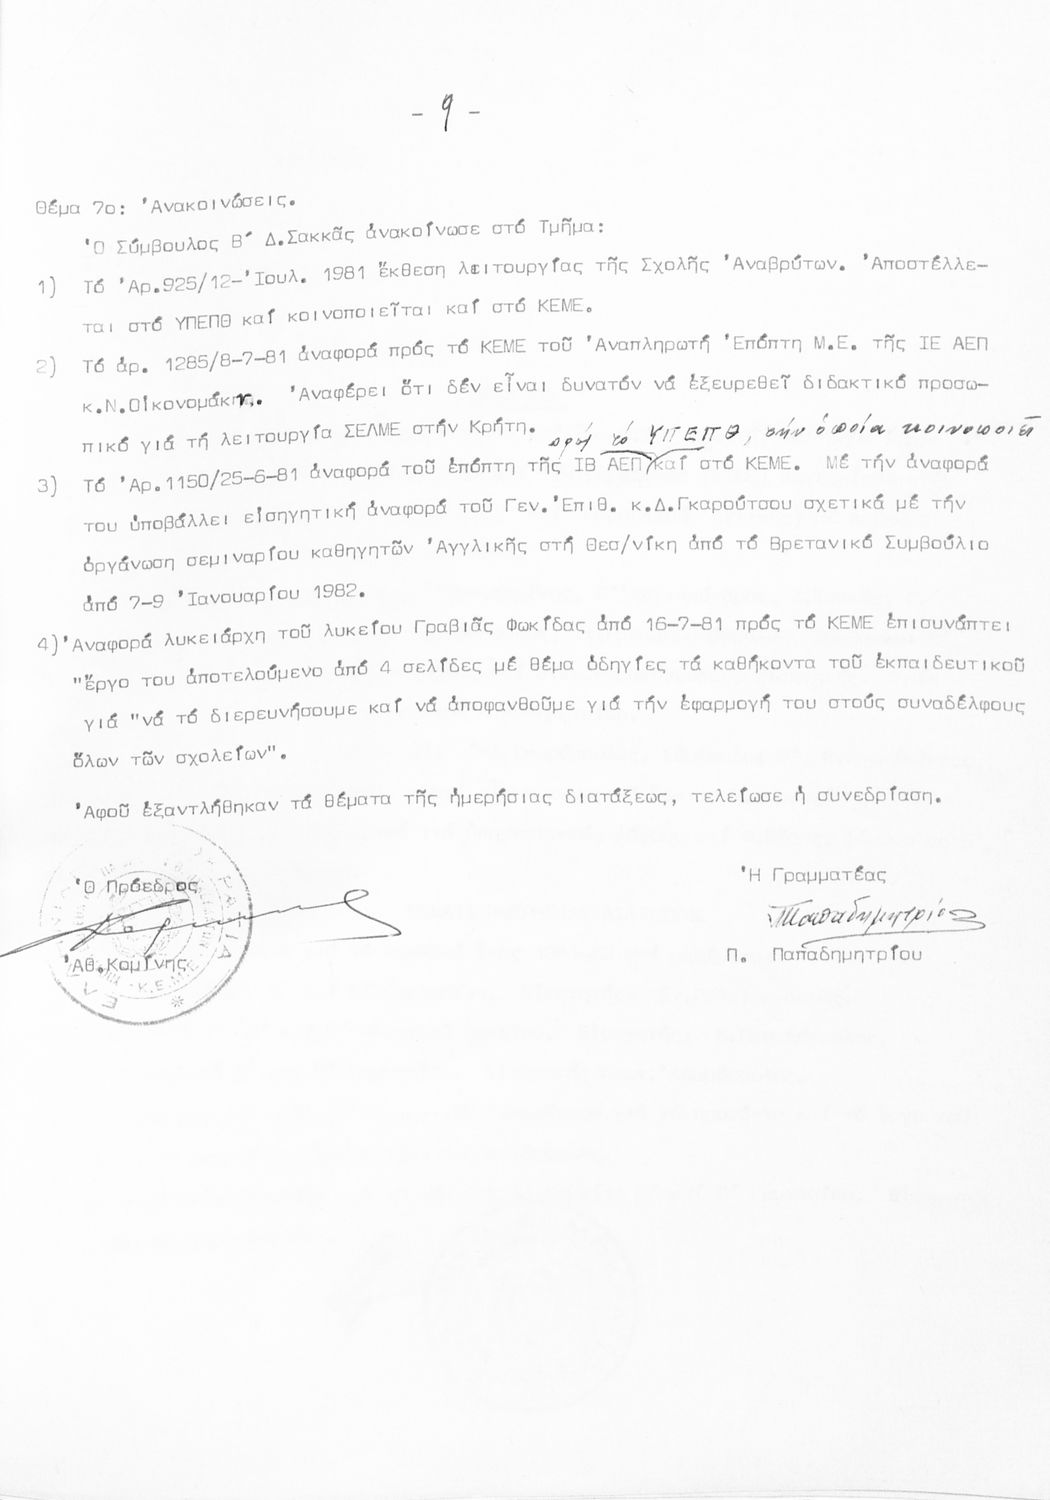 - 9 -
Θέμα 7ο: Ἀνακοινώσεις.
Ὁ Σύμβουλος Β΄ Δ.Σακκᾶς ἀνακοίνωσε στό Τμῆμα:
1) Τό Ἀρ.925/12-Ἰουλ. 1981 ἔκθεση λειτουργίας τῆς Σχολῆς Ἀναβρύτων. Ἀποστέλλε-
ται στό ΥΠΕΠΘ καί κοινοποιεῖται καί στό ΚΕΜΕ.
2) Τό ἀρ. 1285/8-7-81 ἀναφορά πρός τό ΚΕΜΕ τοῦ Ἀναπληρωτή Ἐπόπτη Μ.Ε. τῆς ΙΕ ΑΕΠ
κ.Ν.Οἰκονομάκη. Ἀναφέρει ὅτι δέν εἶναι δυνατόν νά ἐξευρεθεῖ διδακτικό προσω-
πικό γιά τή λειτουργία ΣΕΛΜΕ στήν Κρήτη.
πρός τό ΥΠΕΠΘ, τήν ὁποία κοινοποιεῖ
3) Τό Ἀρ.1150/25-6-81 ἀναφορά τοῦ ἐπόπτη τῆς ΙΒ ΑΕΠ καί στό ΚΕΜΕ. Μέ τήν ἀναφορά
του ὑποβάλλει εἰσηγητική ἀναφορά τοῦ Γεν.Ἐπιθ. κ.Δ.Γκαρούτσου σχετικά μέ τήν
ὀργάνωση σεμιναρίου καθηγητῶν Ἀγγλικῆς στή Θεσ/νίκη ἀπό τό Βρετανικό Συμβούλιο
ἀπό 7-9 Ἰανουαρίου 1982.
4) Ἀναφορά λυκειάρχη τοῦ λυκείου Γραβιᾶς Φωκίδας ἀπό 16-7-81 πρός τό ΚΕΜΕ ἐπισυνάπτει
"ἔργο του ἀποτελούμενο ἀπό 4 σελίδες μέ θέμα ὁδηγίες τά καθήκοντα τοῦ ἐκπαιδευτικοῦ
γιά "νά τό διερευνήσουμε καί νά ἀποφανθοῦμε γιά τήν ἐφαρμογή του στούς συναδέλφους
ὅλων τῶν σχολείων".
Ἀφοῦ ἐξαντλήθηκαν τά θέματα τῆς ἡμερήσιας διατάξεως, τελείωσε ἡ συνεδρίαση.
Ὁ Πρόεδρος
Ἀθ.Κομίνης
Ἡ Γραμματέας
Παπαδημητρίου
Π. Παπαδημητρίου